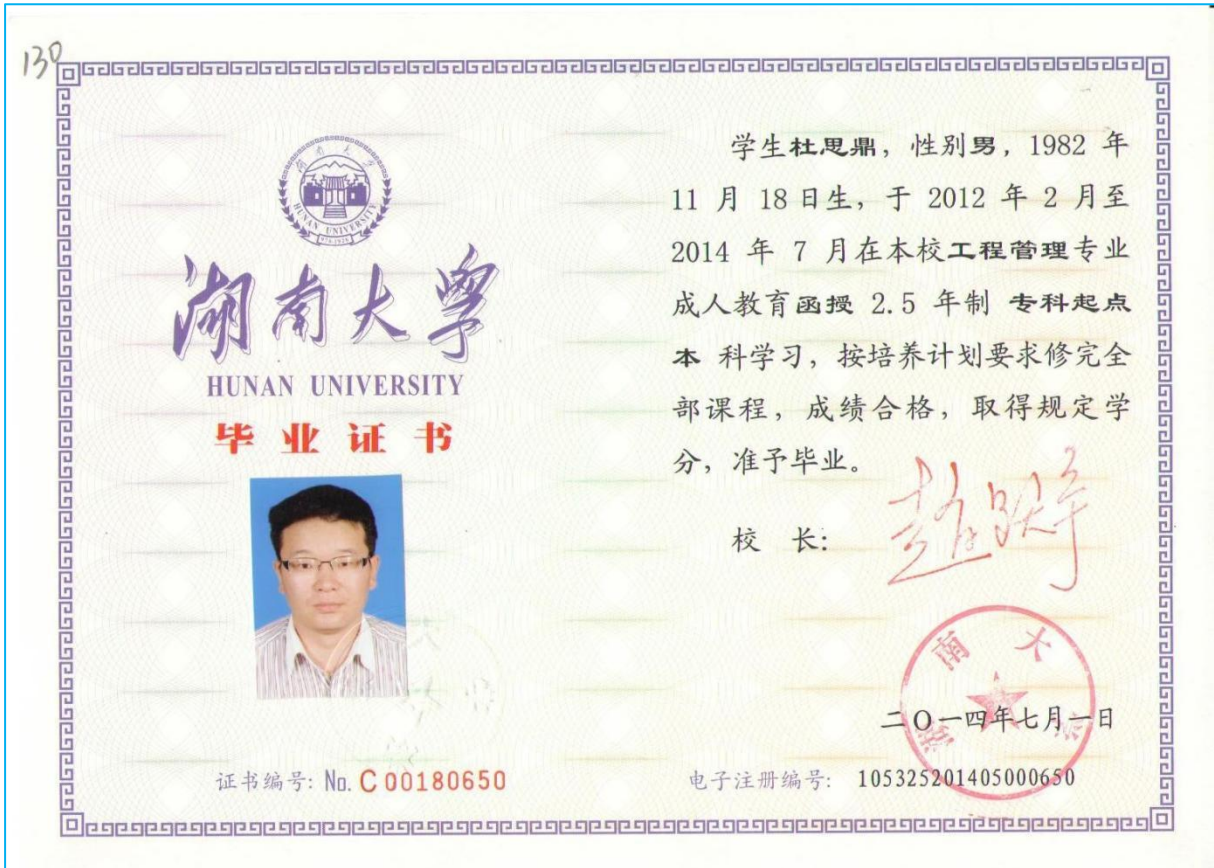 130
湖南大学
HUNAN UNIVERSITY
湖南大学
HUNAN UNIVERSITY
毕业证书
证书编号: No. C 00180650
学生杜思鼎，性别男，1982 年
11 月 18 日生，于 2012 年 2 月至
2014 年 7 月在本校工程管理专业
成人教育函授 2.5 年制 专科起点
本 科学习，按培养计划要求修完全
部课程，成绩合格，取得规定学
分，准予毕业。
校 长:
湖南大学
二〇一四年七月一日
电子注册编号: 105325201405000650